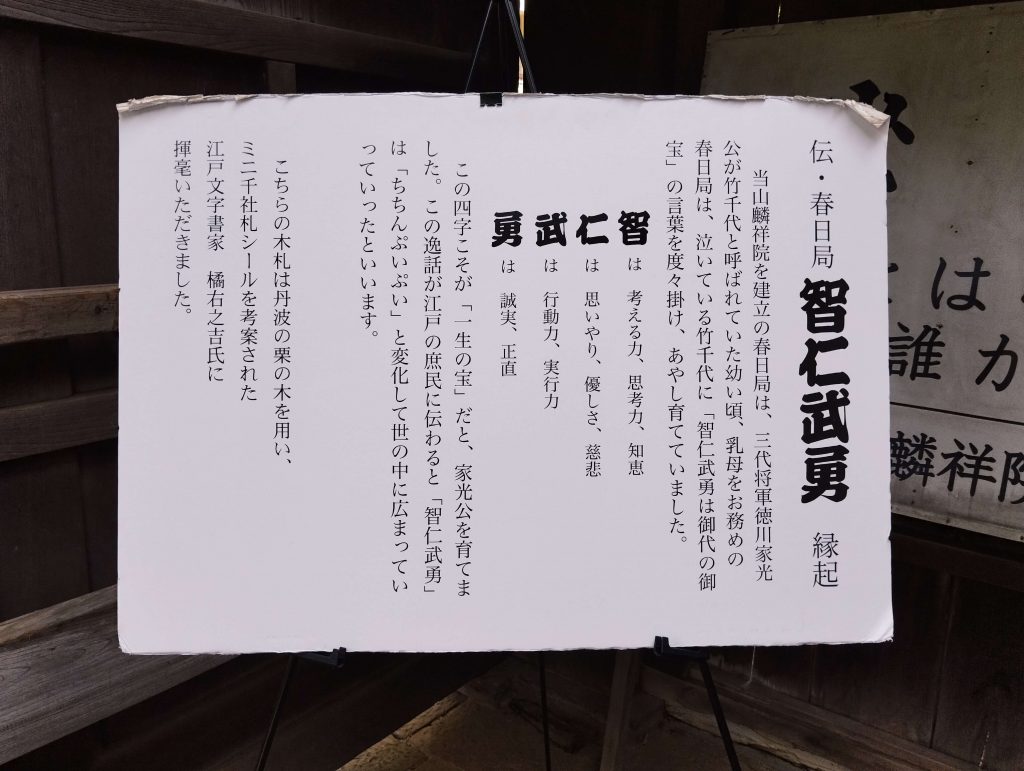 伝・春日局 智仁武勇 縁起
当山麟祥院を建立の春日局は、三代将軍徳川家光
公が竹千代と呼ばれていた幼い頃、乳母をお務めの
春日局は、泣いている竹千代に「智仁武勇は御代の御
宝」の言葉を度々掛け、あやし育てていました。
智 は 考える力、思考力、知恵
仁 は 思いやり、優しさ、慈悲
武 は 行動力、実行力
勇 は 誠実、正直
この四字こそが「一生の宝」だと、家光公を育てま
した。この逸話が江戸の庶民に伝わると「智仁武勇」
は「ちちんぷいぷい」と変化して世の中に広まってい
っていったといいます。
こちらの木札は丹波の栗の木を用い、
ミニ千社札シールを考案された
江戸文字書家 橘右之吉氏に
揮毫いただきました。
は
誰か
麟祥院